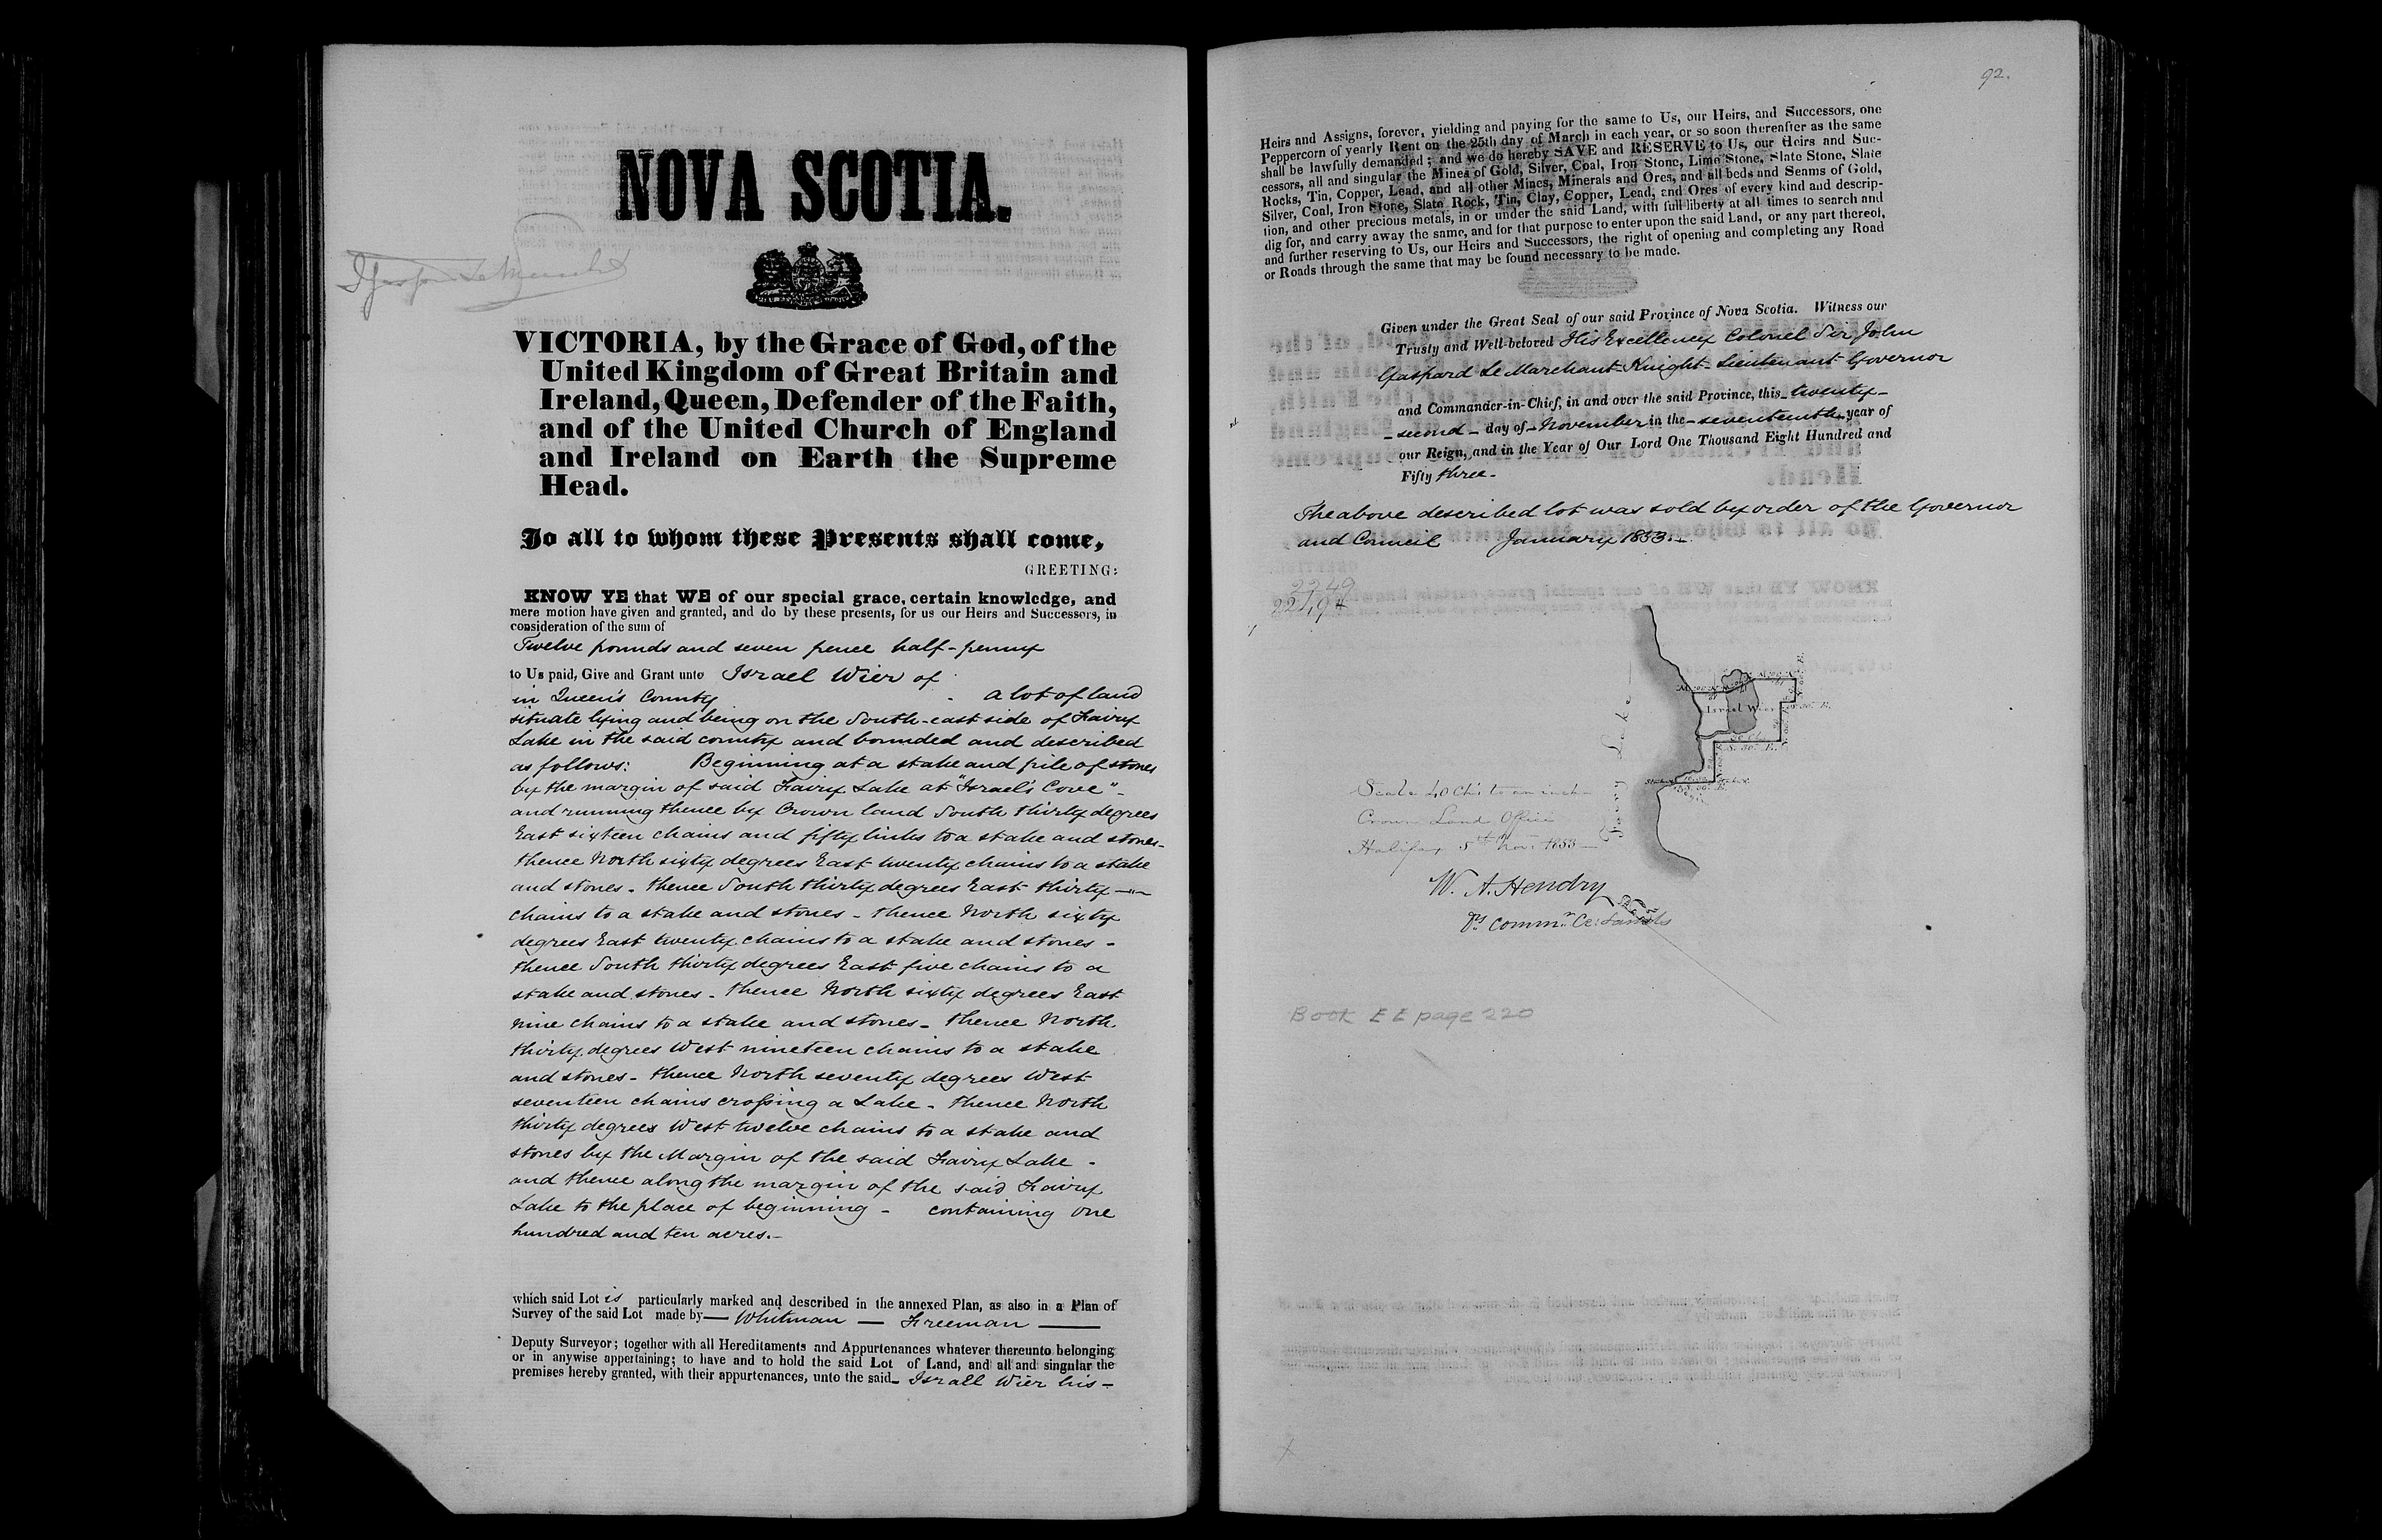 NOVA SCOTIA.
VICTORIA, by the Grace of God, of the
United Kingdom of Great Britain and
Ireland, Queen, Defender of the Faith,
and of the United Church of England
and Ireland on Earth the Supreme
Head.
To all to whom these Presents shall come,
GREETING:
KNOW YE that WE of our special grace, certain knowledge, and
mere motion have given and granted, and do by these presents, for us our Heirs and Successors, in
consideration of the sum of
Twelve pounds and seven pence half-penny
to Us paid, Give and Grant unto Israel Wier of
in Queen's County a lot of land
situate lying and being on the South-east side of Fairy
Lake in the said county and bounded and described
as follows: Beginning at a stake and pile of stones
by the margin of said Fairy Lake at "Israel's Cove" -
and running thence by Crown land South thirty degrees
East sixteen chains and fifty links to a stake and stones -
thence North sixty degrees East twenty chains to a stake
and stones - thence South thirty degrees East thirty
chains to a stake and stones - thence North sixty
degrees East twenty chains to a stake and stones -
thence South thirty degrees East five chains to a
stake and stones - thence North sixty degrees East
nine chains to a stake and stones - thence North
thirty degrees West nineteen chains to a stake
and stones - thence North seventy degrees West
seventeen chains crossing a Lake - thence North
thirty degrees West twelve chains to a stake and
stones by the Margin of the said Fairy Lake -
and thence along the margin of the said Fairy
Lake to the place of beginning - containing one
hundred and ten acres.-
which said Lot is particularly marked and described in the annexed Plan, as also in a Plan of
Survey of the said Lot made by — Whitman — Freeman —
Deputy Surveyor; together with all Hereditaments and Appurtenances whatever thereunto belonging
or in anywise appertaining; to have and to hold the said Lot of Land, and all and singular the
premises hereby granted, with their appurtenances, unto the said - Israll Wier his -
92.
Heirs and Assigns, forever, yielding and paying for the same to Us, our Heirs, and Successors, one
Peppercorn of yearly Rent on the 25th day of March in each year, or so soon thereafter as the same
shall be lawfully demanded; and we do hereby SAVE and RESERVE to Us, our Heirs and Suc-
cessors, all and singular the Mines of Gold, Silver, Coal, Iron Stone, Lime Stone, Slate Stone, Slate
Rocks, Tin, Copper, Lead, and all other Mines, Minerals and Ores, and all beds and Seams of Gold,
Silver, Coal, Iron Stone, Slate Rock, Tin, Clay, Copper, Lead, and Ores of every kind and descrip-
tion, and other precious metals, in or under the said Land, with full liberty at all times to search and
dig for, and carry away the same, and for that purpose to enter upon the said Land, or any part thereof,
and further reserving to Us, our Heirs and Successors, the right of opening and completing any Road
or Roads through the same that may be found necessary to be made.
Given under the Great Seal of our said Province of Nova Scotia. Witness our
Trusty and Well-beloved His Excellency Colonel Sir John
Gaspard Le Marchant Knight Lieutenant Governor
and Commander-in-Chief, in and over the said Province, this twenty-
- second - day of - November in the - seventeenth - year of
our Reign, and in the Year of Our Lord One Thousand Eight Hundred and
Fifty three -
The above described lot was sold by order of the Governor
and Council January 1853.-
2249
22494
Israel Wier
Fairy Lake
Scale 40 Chs. to an inch
Crown Land Office
Halifax 5th Nov. 1853
W. A. Hendry
Dy. Commr. Cr. Lands
Book EE page 220